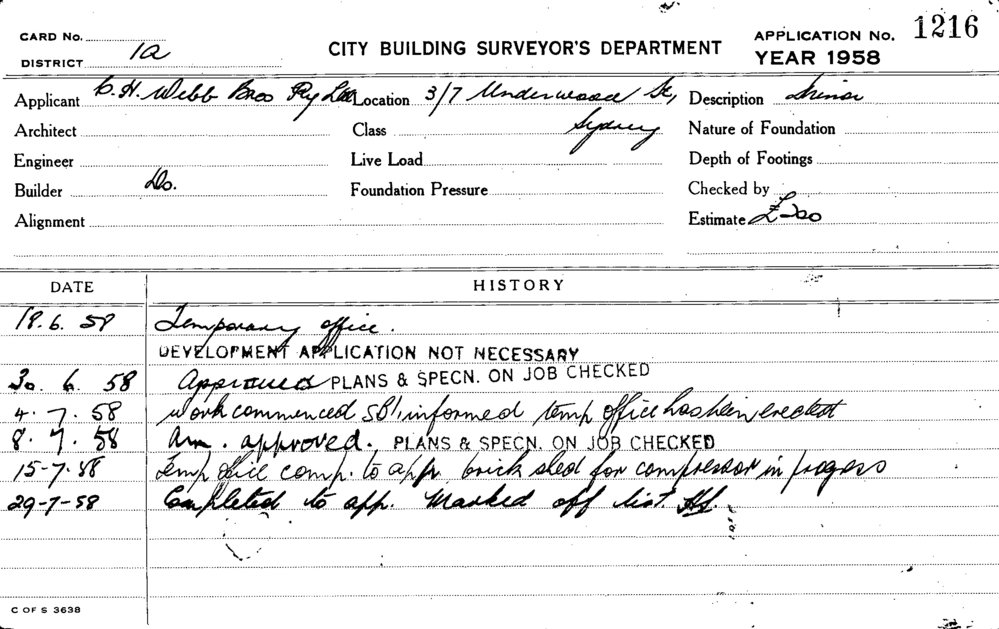 CARD No.
CITY BUILDING SURVEYOR'S DEPARTMENT
APPLICATION No. 1216
DISTRICT 1a
YEAR 1958
Applicant C. H. Webb Bros Pty Ltd
Location 3/7 Underwood St,
Sydney
Description Minor
Architect
Class
Nature of Foundation
Engineer
Live Load
Depth of Footings
Builder Do.
Foundation Pressure
Checked by
Alignment
Estimate
DATE HISTORY
18.6.58 Temporary office.
DEVELOPMENT APPLICATION NOT NECESSARY
30.6.58 Approved PLANS & SPECN. ON JOB CHECKED
4.7.58 work commenced informed temp office has been erected
8.7.58 Am. approved. PLANS & SPECN. ON JOB CHECKED
15-7-58 Temp office comp. to app. brick shed for compressor in progress
29-7-58 Completed to app. Marked off list.
C OF S 3638